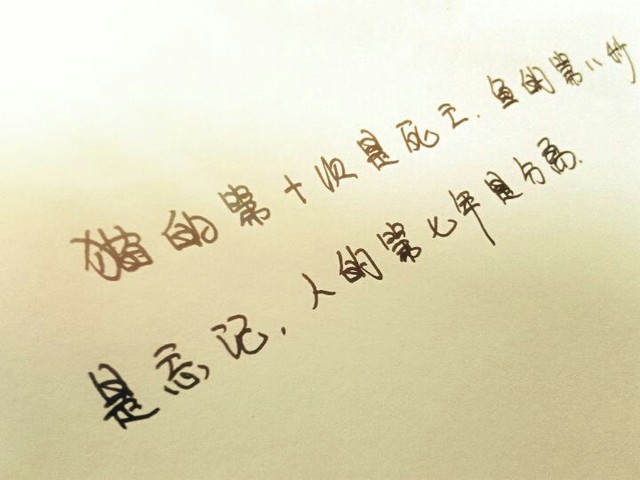 猫的第十次是死亡.鱼的第八秒
是忘记,人的第七年是分离.